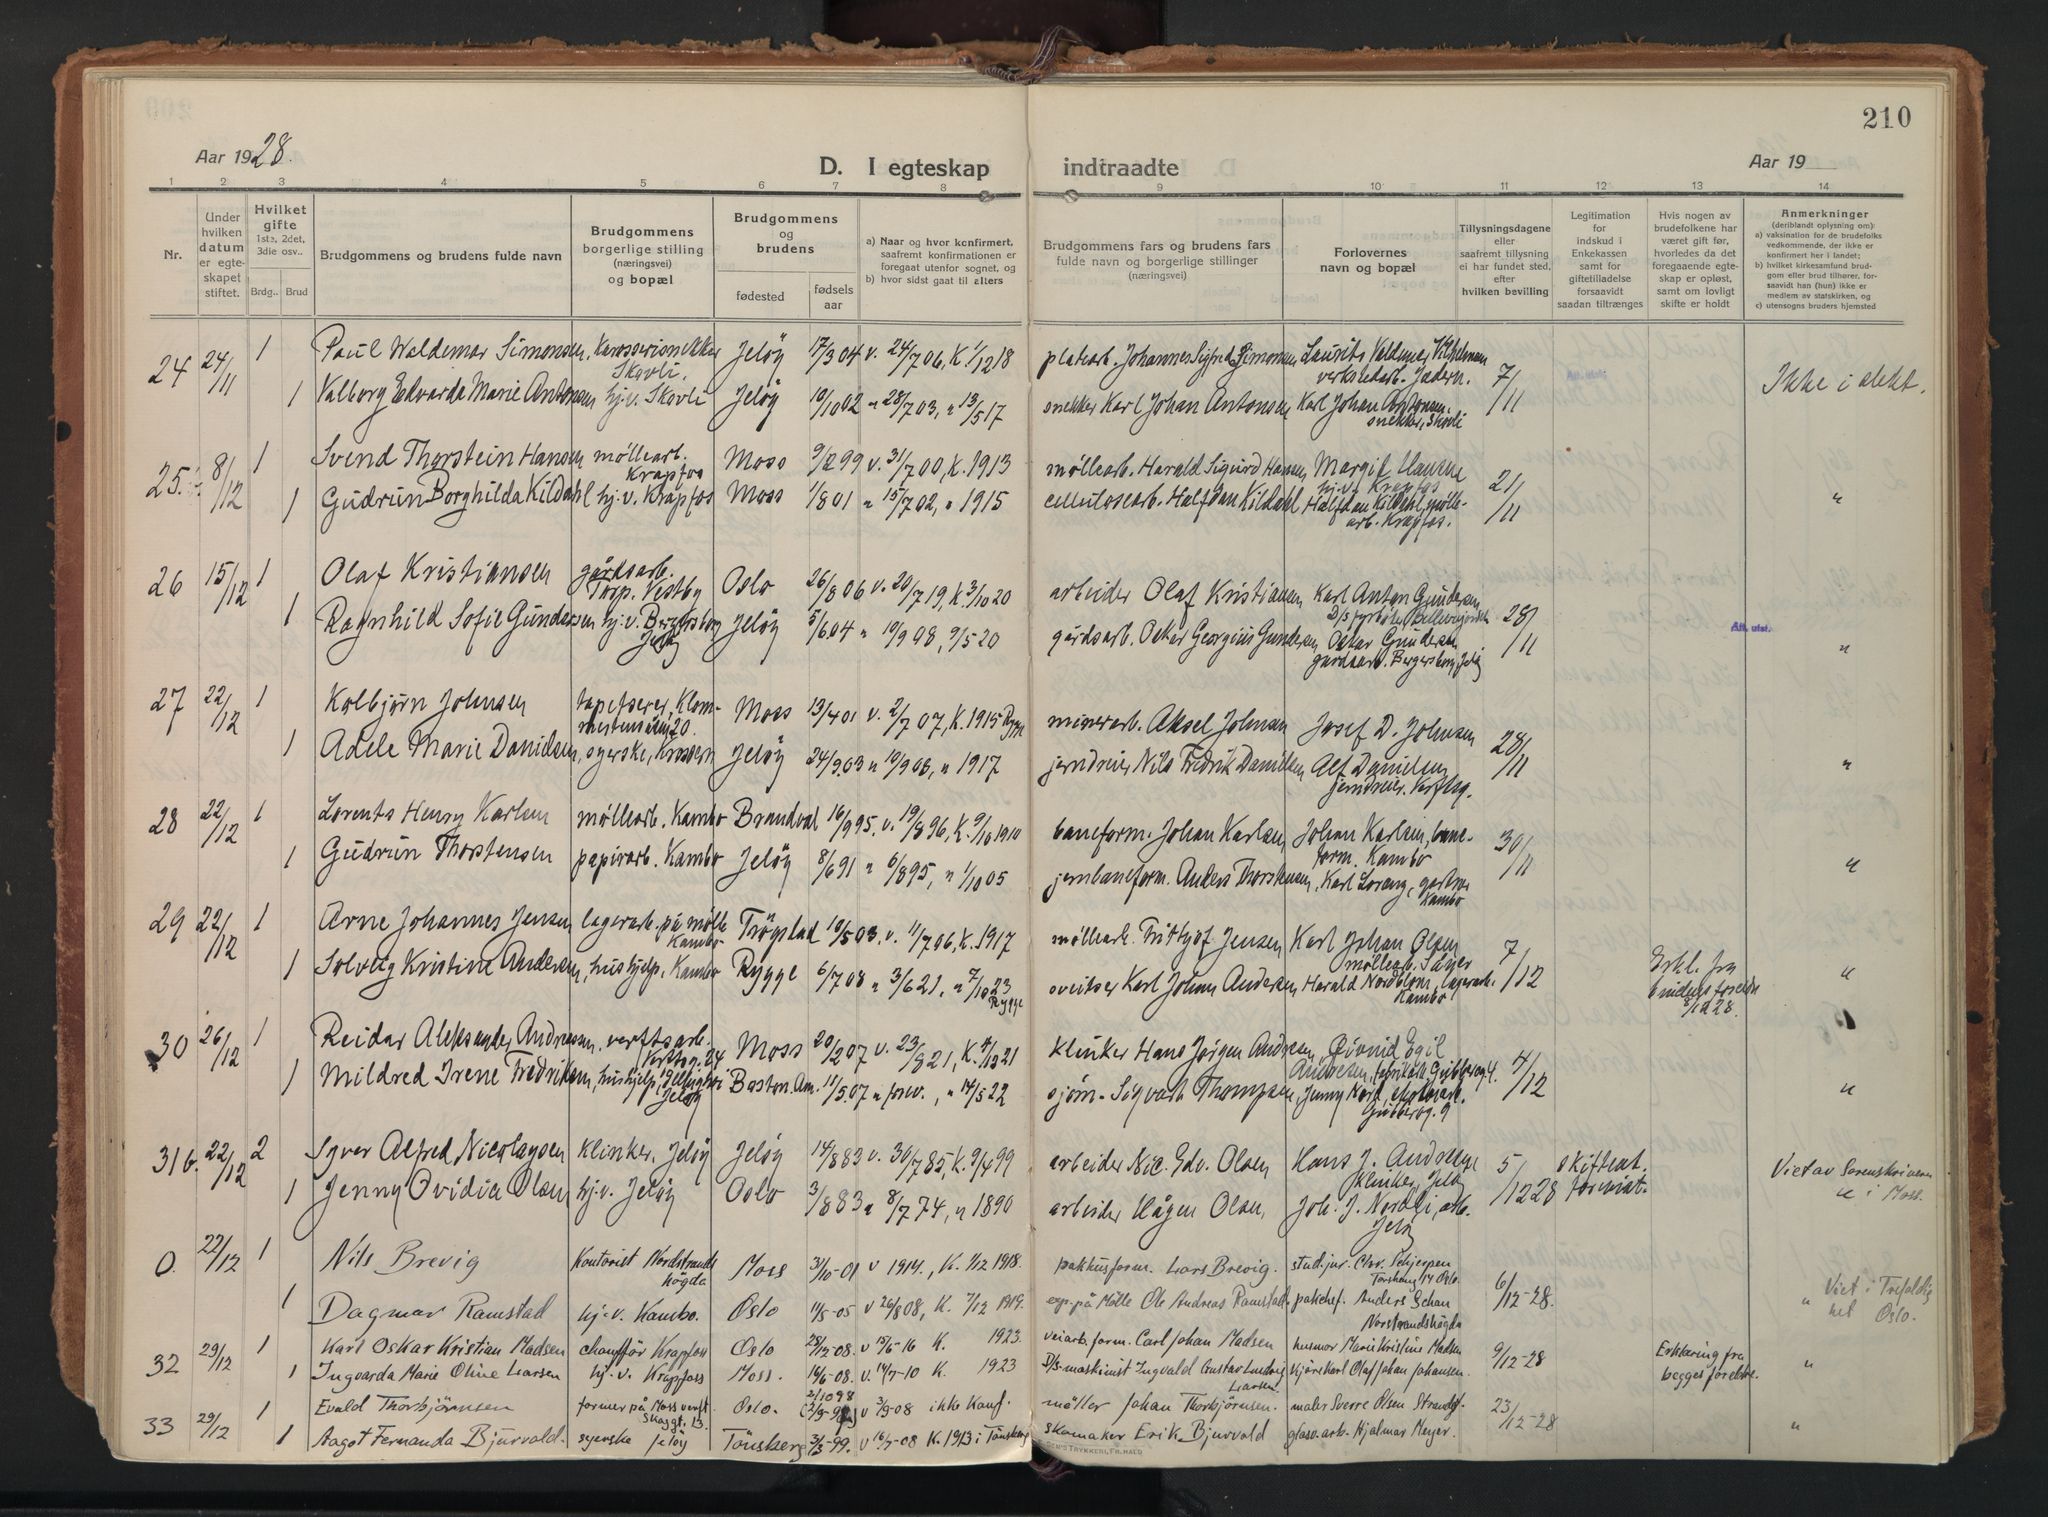 210
Aar 1928.
D. I egteskap
indtraadte
Aar 19
1 2 3 4 5 6 7 8 9 10 11 12 13 14
Nr.
Under hvilken datum er egteskapet stiftet.
Hvilket gifte
1ste, 2det, 3die osv..
Brdg.. Brud
Brudgommens og brudens fulde navn
Brudgommens borgerlige stilling (næringsvei) og bopæl
Brudgommens og brudens
fødested
fødsels aar
a) Naar og hvor konfirmert, saafremt konfirmationen er foregaat utenfor sognet, og
b) hvor sidst gaat til alters
Brudgommens fars og brudens fars fulde navn og borgerlige stillinger (næringsvei)
Forlovernes navn og bopæl
Tillysningsdagene eller saafremt tillysning ei har fundet sted, efter hvilken bevilling
Legitimation for indskud i Enkekassen samt for giftetilladelse forsaavidt saadan tiltrænges
Hvis nogen av brudefolkene har været gift før, hvorledes da det foregaaende egteskap er opløst, samt om lovligt skifte er holdt
Anmerkninger
(deriblandt oplysning om:
a) vaksination for de brudefolks vedkommende, der ikke er konfirmert her i landet;
b) hvilket kirkesamfund brudgom eller brud tilhører, forsaavidt han (hun) ikke er medlem av statskirken, og
c) utensogns bruders hjemsted
24 24/11 1 Paul Waldemar Simonsen, Karosserisnekker Skovli. Jeløy 17/3 04 v. 24/7 06, K. 1/12 18 platearb. Johannes Sigfred Simonsen Laurits Valdemar Vilhelmsen verkstedarb. Jødern. 7/11 Att. utst. Ikke i slekt.
1 Valborg Edvarda Marie Antonsen hj.v. Skovli Jeløy 10/10 02 " 28/7 03, " 13/5 17 snekker Karl Johan Antonsen Karl Johan Antonsen, snekker, Skovli
25. 8/12 1 Svend Thorstein Hansen møllearb. Krapfos Moss 9/12 99 v. 31/7 00, K. 1913 møllearb. Harald Sigurd Hansen Margit Hansen hj.v. Krapfos 21/11 "
1 Gudrun Borghilda Kildahl hj.v. Krapfos Moss 1/8 01 " 15/7 02, " 1915 cellulosearb. Halfdan Kildahl Halfdan Kildahl, møllearb. Krapfos.
26 15/12 1 Olaf Kristiansen gårdsarb. Torp. Vestby Oslo 26/8 06 v. 20/7 19, K. 3/10 20 arbeider Olaf Kristiansen Karl Anton Gundersen 28/11
1 Ragnhild Sofie Gundersen hj.v. Bergersborg Jeløy Jeløy 5/6 04 " 10/9 08, 9/5 20 gårdsarb. Oskar Georgius Gundersen Oskar Gundersen gårdsarb. Bergersborg, Jeløy Att. utst. "
27 22/12 1 Kolbjørn Johnsen tapetserer, Moss 13/4 01 v. 2/7 07, K. 1915 Rygge minerarb. Aksel Johnsen Josef D. Johnsen 28/11
1 Adele Marie Danielsen, syerske, Krossern Jeløy 24/9 03 " 10/9 08, " 1917 jerndreier Nils Fredrik Danielsen Alf Danielsen jerndreier. Verftsg. "
28 22/12 1 Lorents Henry Karlsen møllearb. Kambo Brandval 16/9 95. v. 19/8 96, K. 9/10 1910 baneform. Johan Karlsen Johan Karlsen, baneform. Kambo 30/11
1 Gudrun Thorstensen papirarb. Kambo Jeløy 8/6 91 " 6/8 95, " 1/10 05 jernbaneform. Anders Thorstensen, Karl Lorang, Kambo "
29 22/12 1 Arne Johannes Jensen lagerarb. på mølle Kambo Trögstad 10/5 03, v. 11/7 06, K. 1917 møllearb. Fritjof Jensen Karl Johan Olsen møllearb. 7/12
1 Solveig Kristine Andersen, hushjelp, Kambo Rygge 6/7 08 " 3/6 21, " 7/10 23 Rygge sveitser Karl Johan Andersen Harald Nordblom, lagerarb. Kambo Erkl. fra brudens foreldre 8/12 28. "
30 26/12 1 Reidar Aleksander Andresen, verftsarb. Verftsg. 24 Moss 20/2 07 v. 23/8 21, K. 4/12 21 klinker Hans Jørgen Andresen, Øivind Egil Andresen, Gubberog. 4. 4/12
1 Mildred Irene Fredriksen, hushjelp, Jeløy Boston. Am. 11/5 07 " forev., " 14/5 22 sjøm. Sigvart Thompsen, Jenny Gubberog. 9 "
31b. 22/12 2 Syver Alfred Nicolaysen klinker, Jeløy Jeløy 14/8 83 v. 30/7 85, K. 9/4 99 arbeider Nic. Edv. Olsen Hans J. Andresen klinker, Jeløy 5/12 28 skifteat. forevist. Viet av Sorenskriveren i Moss.
1 Jenny Ovidia Olsen hj.v. Jeløy Oslo 3/8 83 " 8/7 74, " 1890 arbeider Hågen Olsen, Joh. J. Nordli, arb. Jeløy "
0. 22/12 1 Nils Brevig Kontorist Nordstrandshögda Moss 31/10-01 v 1914., K. 1/12 1918. pakhusform. Lars Brevig. stud.jur. Chr. Schjerpen Torshaug 14 Oslo. 6/12-28.
1 Dagmar Ramstad hj.v. Kambo. Oslo 11/5-05 v 26/8 08, K. 7/12 1919. exp. på Mölle Ole Andreas Ramstad pakchef. Anders Schau Norstrandshögda " Viet i Trefoldighet Oslo.
32 29/12 1 Karl Oskar Kristian Madsen chaufför Krapfoss Oslo 28/12-08. v 15/6-16 K. 1923. veiarb. form. Carl Johan Madsen husmor Marie Kristine Madsen 9/12-28 Erklæring fra begges foreldre. "
1 Ingvarda Marie Oline Larsen hj.v. Krapfoss Moss. 16/6-08. v. 14/7-10 K. 1923 D/s-maskinist Ingvald Gustav Ludvig Larsen kjörekarl Olaf Johan Johansen.
33 29/12 1 Evald Thorbjörnsen former på Moss verft Skoggt. 13 Oslo. 2/10 98 v 3/9-08 ikke Konf. möller Johan Thorbjörnsen. maler Sverre Olsen Strandgt. 23/12-28
1 Aagot Fernanda Bjurvald. syerske Jeløy Tönsberg 3/3-99. v 16/7-08 K. 1913 i Tönsberg skomaker Erik Bjurvald glasv.arb. Hjalmar Meyer. "
TRYKKERI, FR.HALD